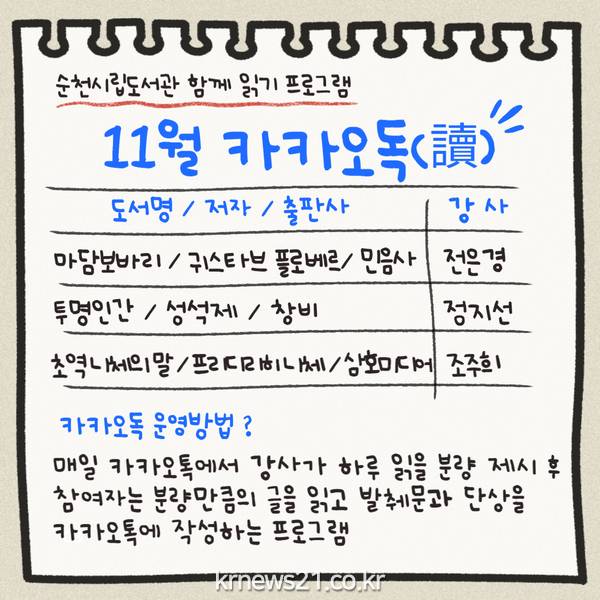 순천시립도서관 함께 읽기 프로그램
11월 카카오독(讀)
도서명 / 저자 / 출판사 강사
마담보바리 / 귀스타브 플로베르 / 민음사 전은경
투명인간 / 성석제 / 창비 점지선
초역 니체의말 / 프리디리히니체 / 삼호미디어 조주희
카카오독 운영방법 ?
매일 카카오톡에서 강사가 하루 읽을 분량 제시 후
참여자는 분량만큼의 글을 읽고 발췌문과 단상을
카카오톡에 작성하는 프로그램
krnews21.co.kr